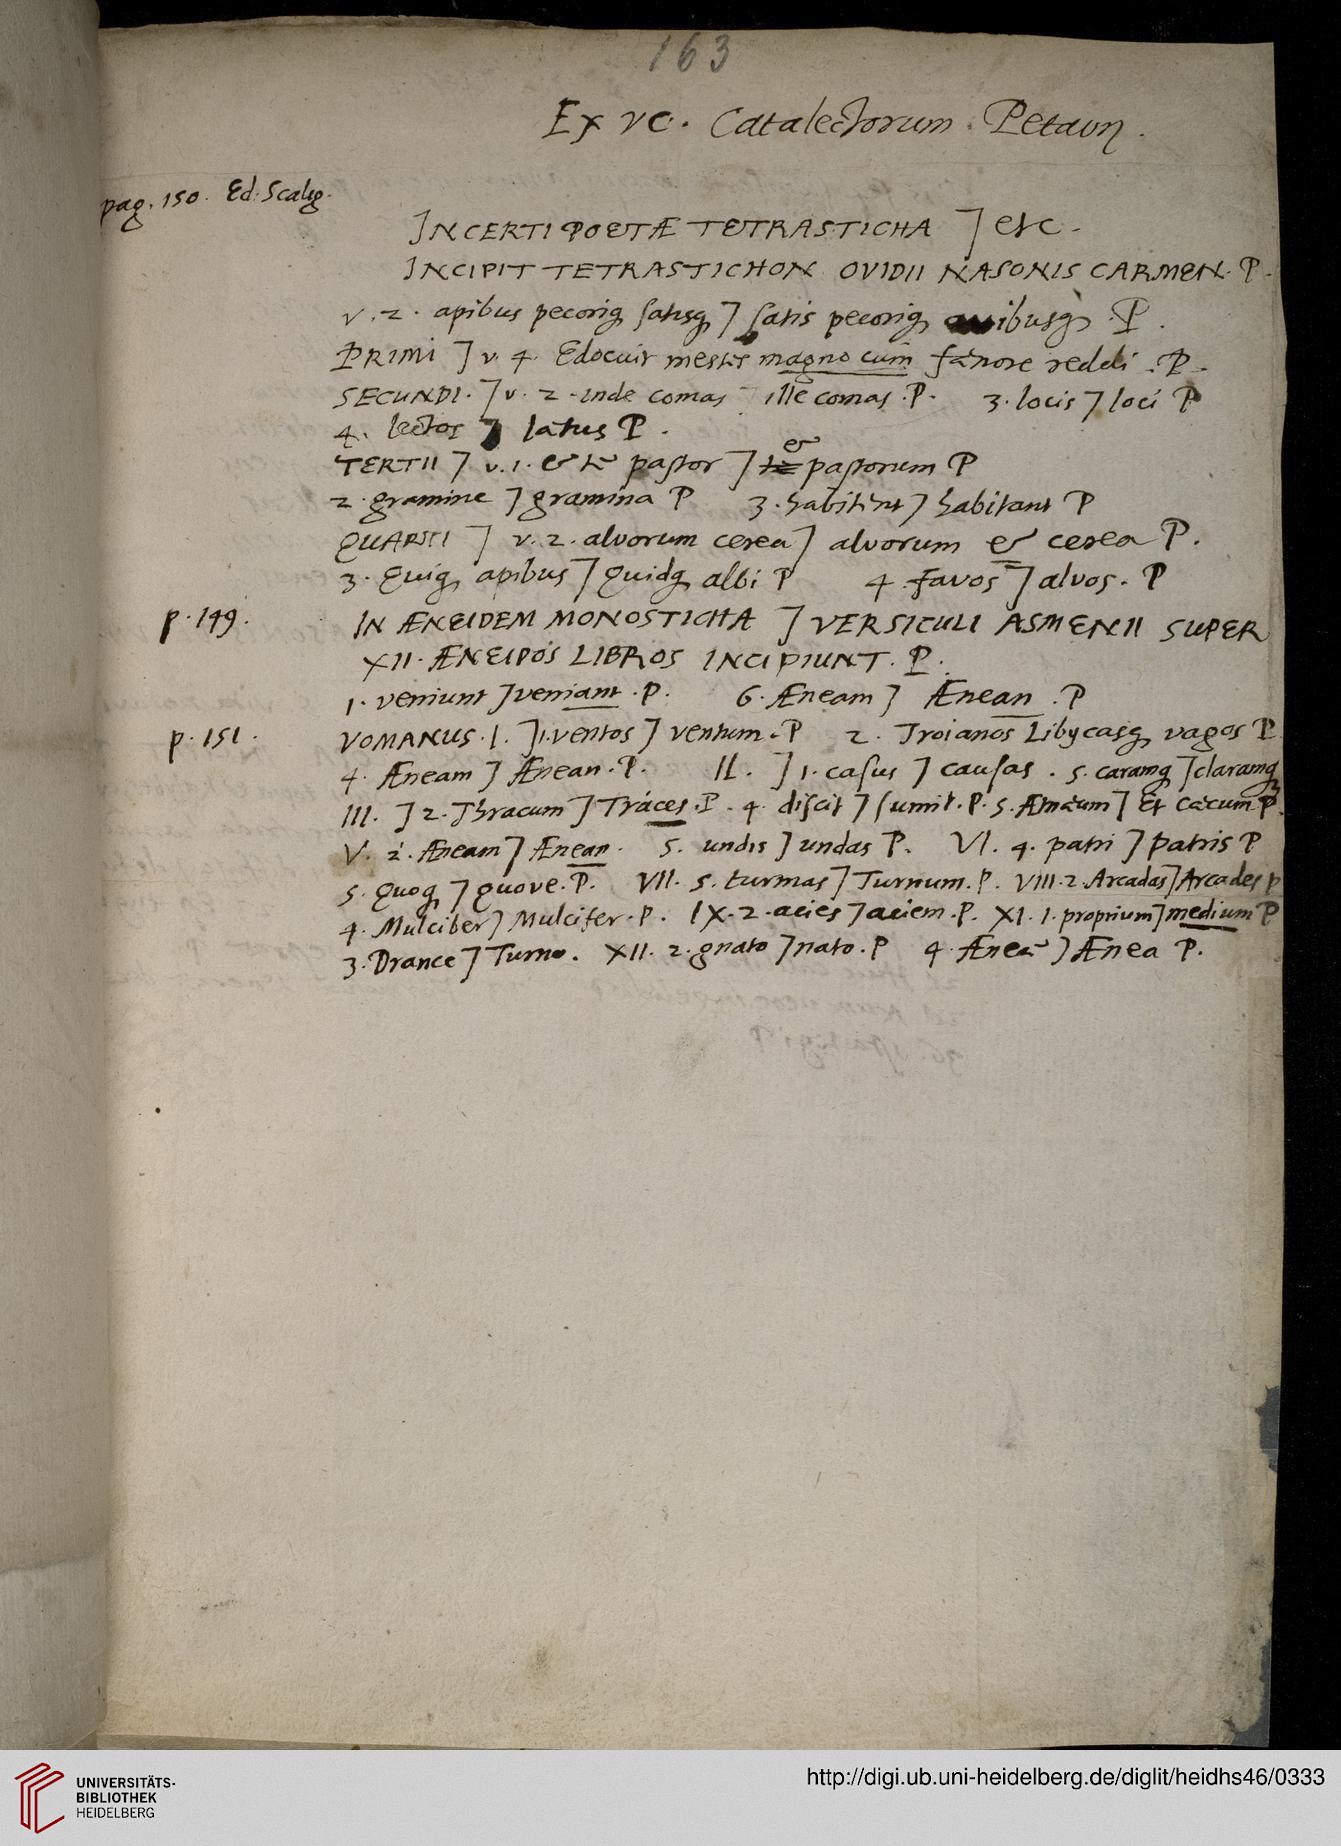 163
Ex vc. Catalectorum Petavij.
pag. 150. Ed. Scalig.
INCERTI POETÆ TETRASTICHA ] etc.
INCIPIT TETRASTICHON OVIDII NASONIS CARMEN. P.
v. 2. apibus pecoriq satisq ] satis pecoriq ibusq. P.
PRIMI ] v. 4. Edocuit messes magno cum fænore reddi. P.
SECUNDI. ] v. 2. inde comas ille comas. P. 3. locis ] loci P
4. lectos ] latus P.
TERTII ] v. 1. & te pastor ] & pastorum P
2. gramine ] gramina P 3. habitent ] habitant P
QUARTI ] v. 2. alvorum cerea ] alvorum & cerea P.
3. Quiq apibus ] Quidq albi P 4. favos ] alvos. P
p. 149. IN ÆNEIDEM MONOSTICHA ] VERSICULI ASMENII SUPER
XII. ÆNEIDOS LIBROS INCIPIUNT. P.
1. veniunt ] veniant. P. 6. Æneam ] Ænean. P
p. 151. VOMANUS. I. ] 1. ventos ] ventum. P 2. Troianos Libycasq vagos P
4. Æneam ] Ænean. P. II. ] 1. casus ] causas. 5. caramq ] claramq
III. ] 2. Thracum ] Tráces. P. 4. discit ] sumit. P. 5. Ætnæum ] Et cæcum P.
V. 2. Æneam ] Ænean. 5. undis ] undas P. VI. 4. patri ] patris P
5. Quoq ] quove. P. VII. 5. turmas ] Turnum. P. VIII. 2. Arcadas ] Arcades P
4. Mulciber ] Mulcifer. P. IX. 2. acies ] aciem. P. XI. 1. proprium ] medium P
3. Drance ] Turno. XII. 2. gnato ] nato. P 4. Æneæ ] Ænea P.
UNIVERSITÄTS-
BIBLIOTHEK
HEIDELBERG
http://digi.ub.uni-heidelberg.de/diglit/heidhs46/0333